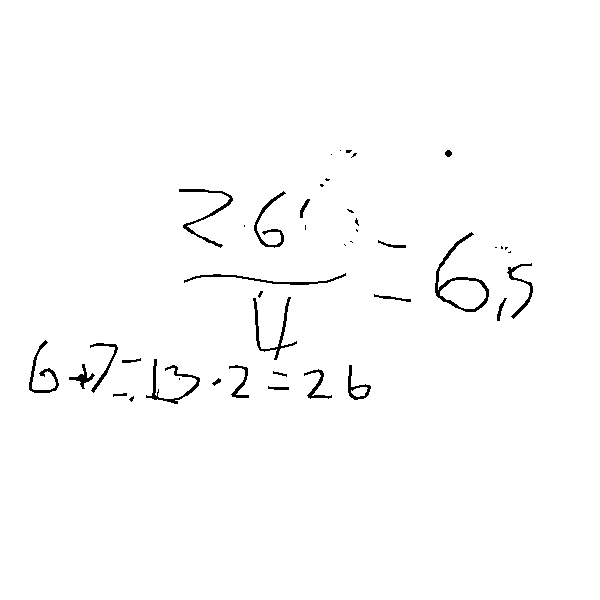 26
4
= 6,5
6+7=13·2=26